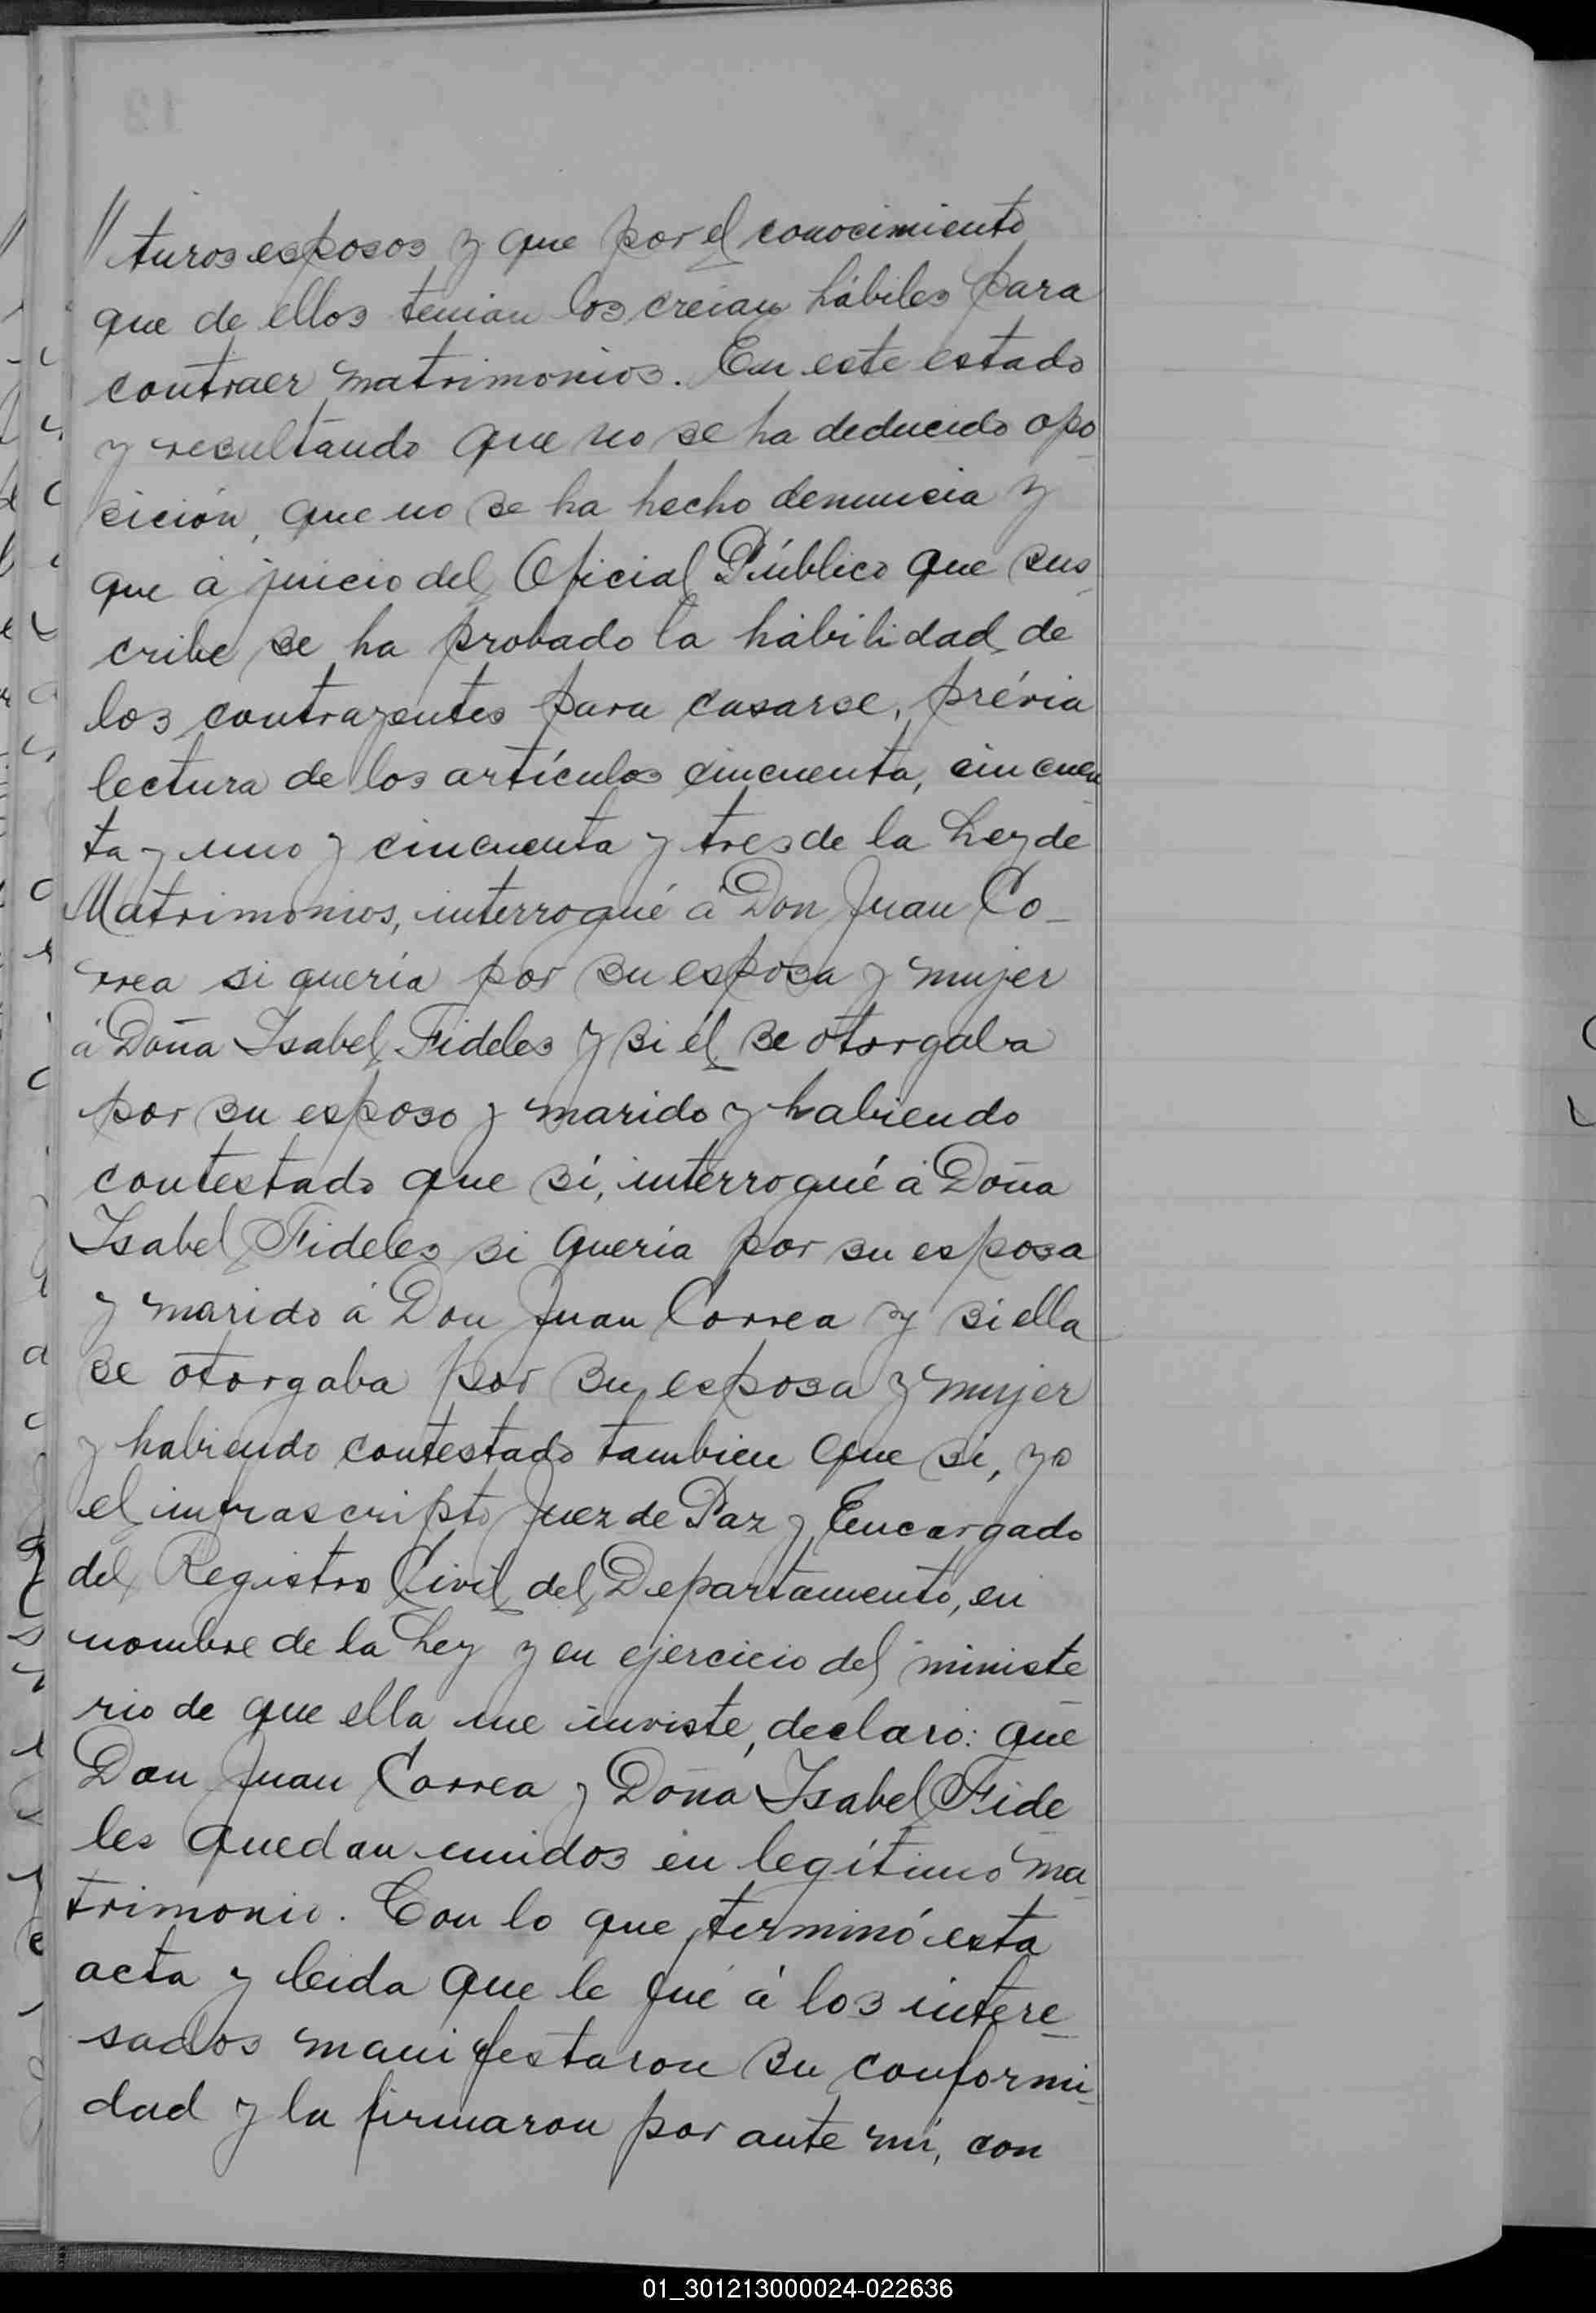 // turos esposos y que por el conocimiento
que de ellos tenian los creian hábiles para
contraer matrimonios. En este estado
y resultando que no se ha deducido opo
sición, que no se ha hecho denuncia y
que á juicio del Oficial Público que sus
cribe se ha probado la hábilidad de
los contrayentes para casarse, prévia
lectura de los artículos cincuenta, cincuen
ta y uno y cincuenta y tres de la Ley de
Matrimonios, interrogué á Don Juan Co-
rrea si quería por su esposa y mujer
á Doña Isabel Fideles y si él se otorgaba
por su esposo y marido y habiendo
contestado que sí, interrogué á Doña
Isabel Fideles si queria por su esposa
y marido á Don Juan Correa y si ella
se otorgaba por su esposa y mujer
y habiendo contestado tambien que si, yo
el infrascripto Juez de Paz y Encargado
del Registro Civil del Departamento, en
nombre de la Ley y en ejercicio del ministe
rio de que ella me inviste, declaro: que
Don Juan Correa y Doña Isabel Fide
les quedan unidos en legítimo ma
trimonio. Con lo que terminó esta
acta y leida que le fué á los intere
sados manifestaron su conformi
dad y la firmaron por ante mi, con
01_301213000024-022636